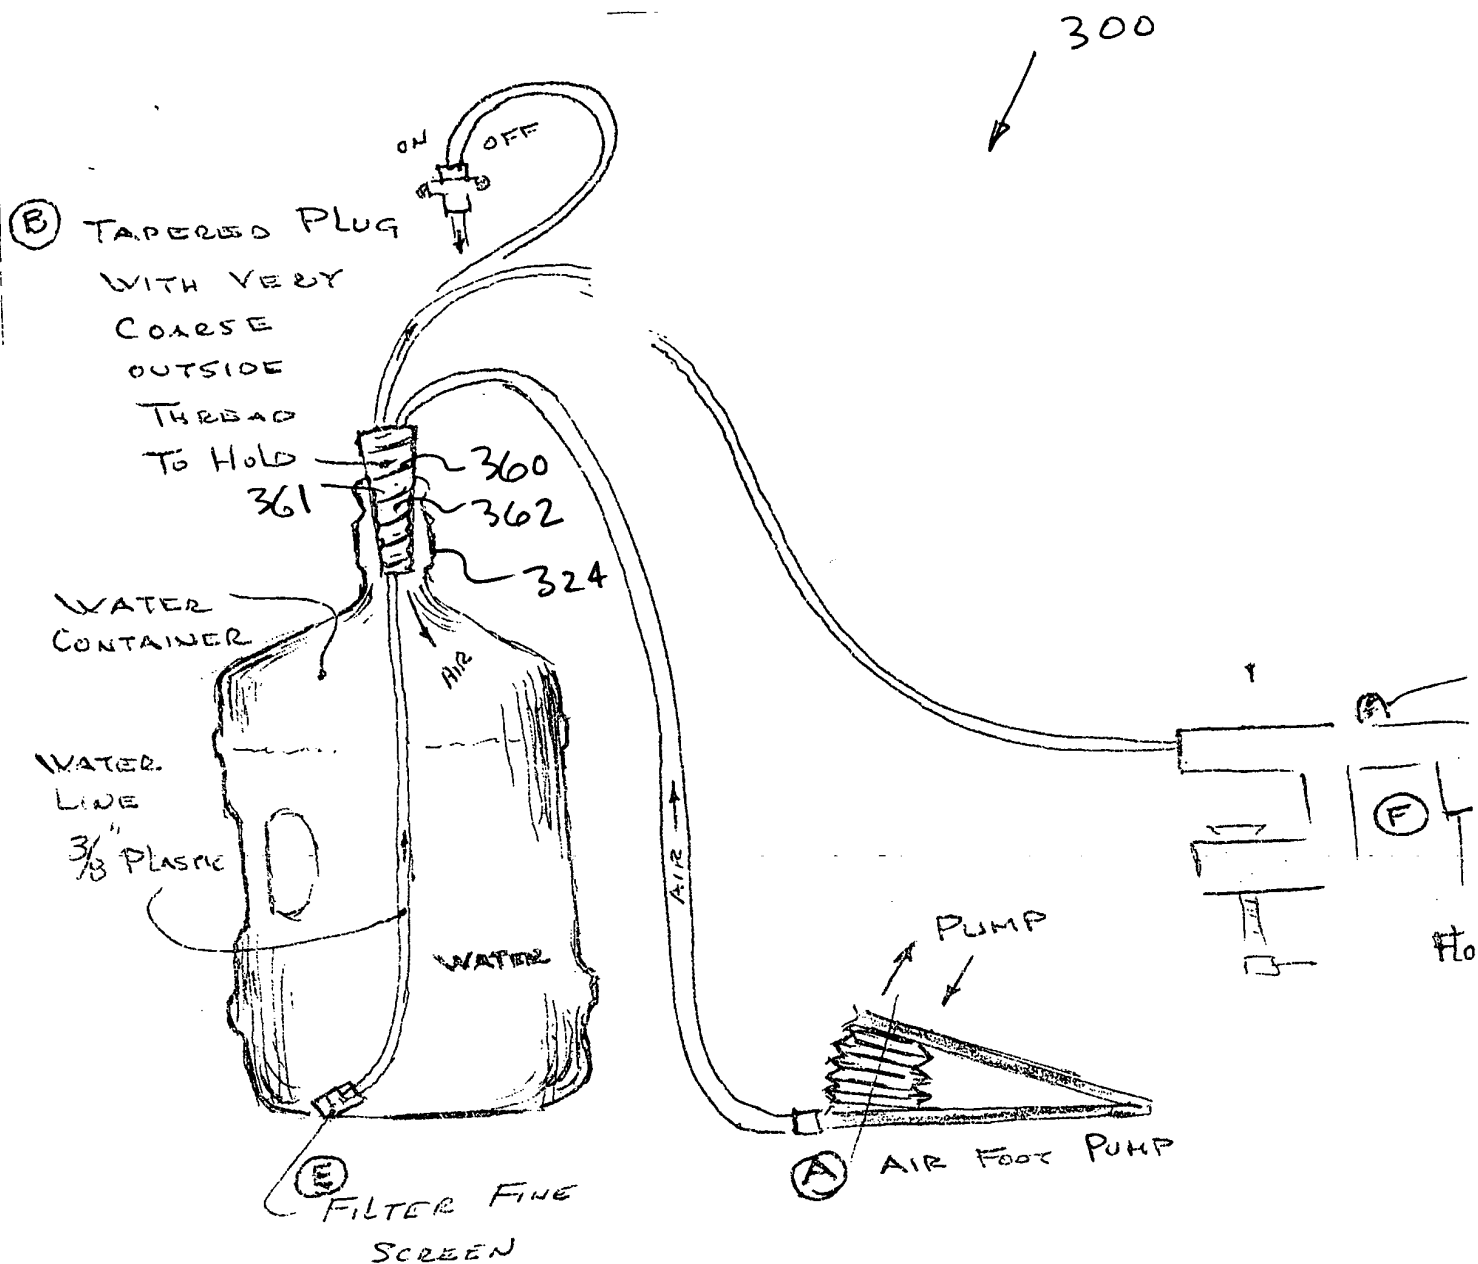 300
ON OFF
B TAPERED PLUG
WITH VERY
COARSE
OUTSIDE
THREAD
TO HOLD
360
361
362
324
WATER
CONTAINER
AIR
WATER
LINE
3/8" PLASTIC
AIR
F
PUMP
WATER
A AIR FOOT PUMP
E
FILTER FINE
SCREEN